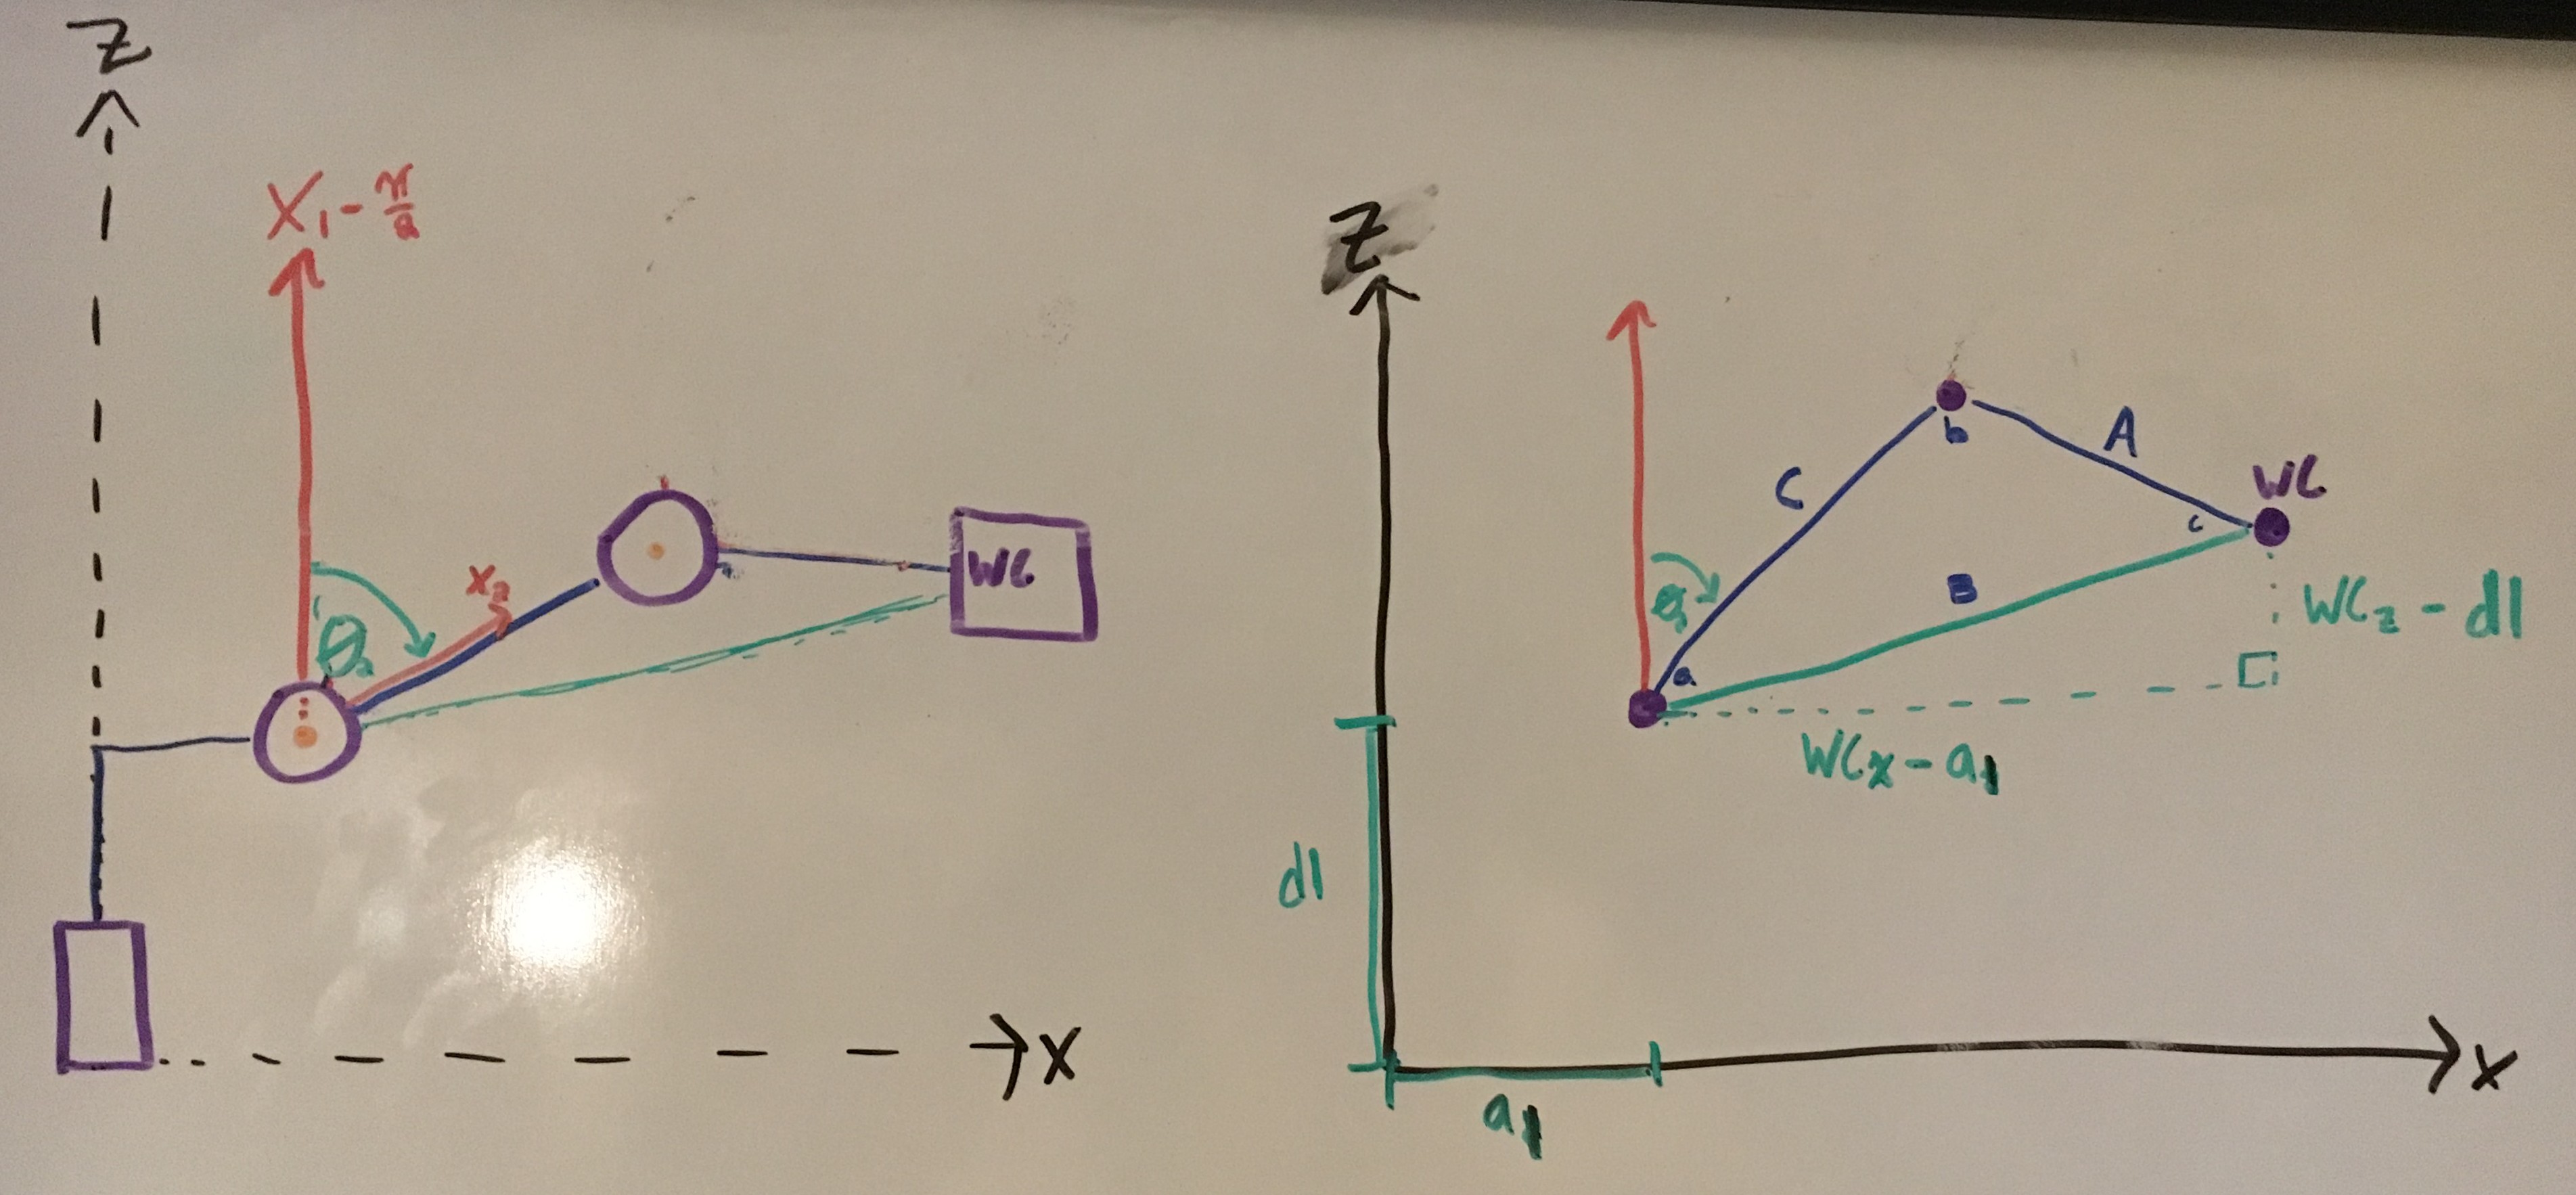 Z
X₁ - π/2
X₂
θ₂
WC
X
Z
b
A
C
WC
c
B
WCz - d1
θ₂
a
WCx - a1
d1
X
a1